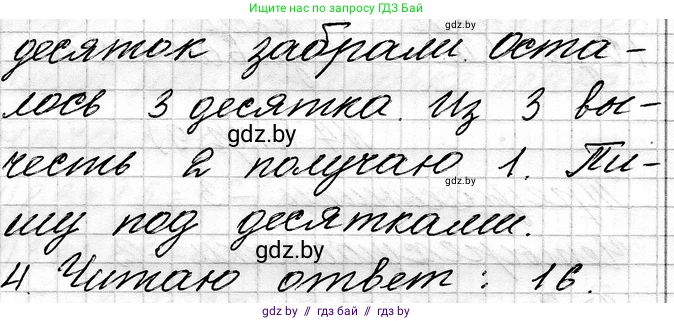 Ищите нас в поиске по запросу ГДЗ Бай
gdz.by
десяток забрали. Оста-
лось 3 десятка. Из 3 вы-
gdz.by
честь 2 получаю 1. Пи-
gdz.by
шу под десятками.
gdz.by
4. Читаю ответ: 16.
gdz.by // гдз бай // gdz.by